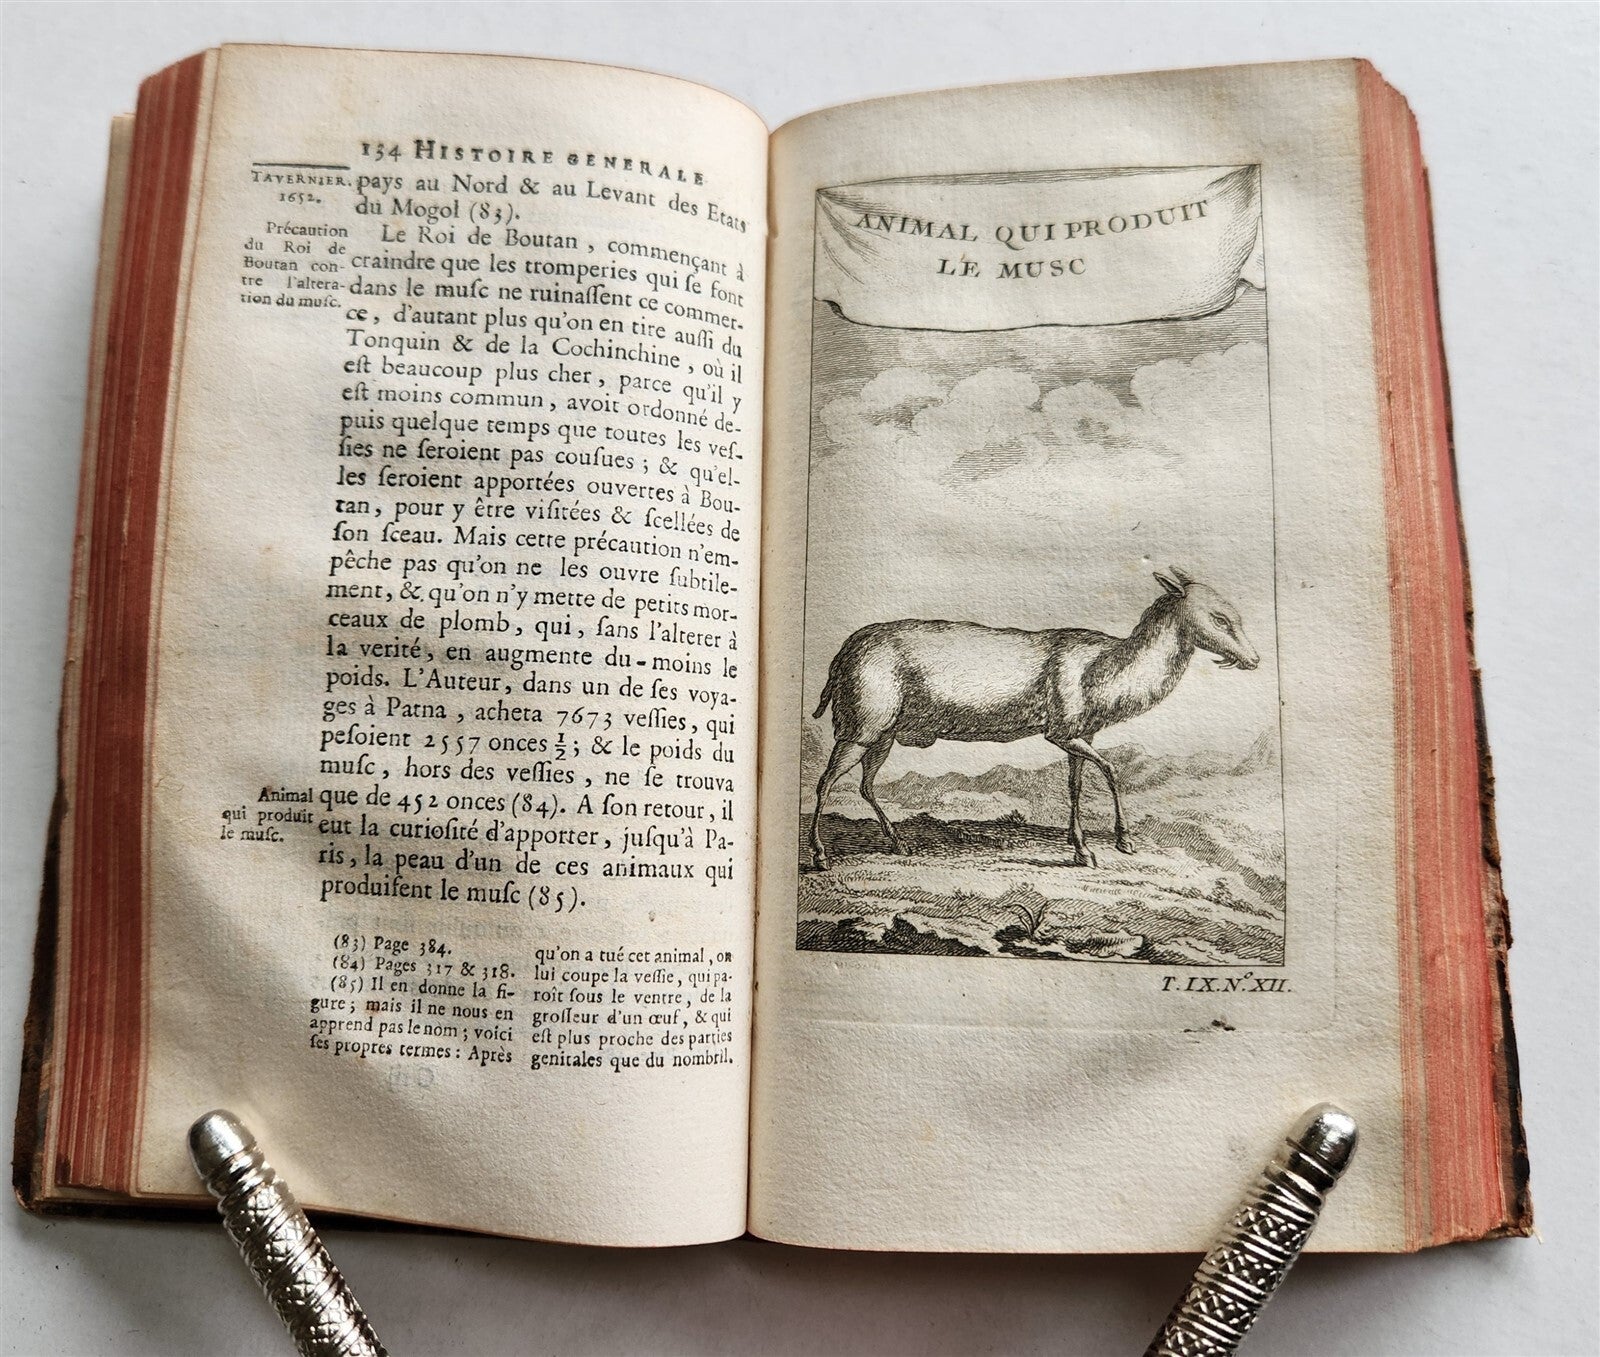 134 HISTOIRE GENERALE
TAVERNIER.
1652.
pays au Nord & au Levant des Etats
du Mogol (83).
Précaution
du Roi de
Boutan con-
tre l'altera-
tion du musc.
Le Roi de Boutan, commençant à
craindre que les tromperies qui ſe font
dans le muſc ne ruinaſſent ce commer-
ce, d'autant plus qu'on en tire auſſi du
Tonquin & de la Cochinchine, où il
eſt beaucoup plus cher, parce qu'il y
eſt moins commun, avoit ordonné de-
puis quelque temps que toutes les veſ-
ſies ne ſeroient pas couſues ; & qu'el-
les ſeroient apportées ouvertes à Bou-
tan, pour y être viſitées & ſcellées de
ſon ſceau. Mais cette précaution n'em-
pêche pas qu'on ne les ouvre ſubtile-
ment, &. qu'on n'y mette de petits mor-
ceaux de plomb, qui, ſans l'alterer à
la verité, en augmente du-moins le
poids. L'Auteur, dans un de ſes voya-
ges à Patna, acheta 7673 veſſies, qui
peſoient 2557 onces ½; & le poids du
muſc, hors des veſſies, ne ſe trouva
que de 452 onces (84). A ſon retour, il
eut la curioſité d'apporter, juſqu'à Pa-
ris, la peau d'un de ces animaux qui
produiſent le muſc (85).
Animal
qui produit
le muſc.
(83) Page 384.
(84) Pages 317 & 318.
(85) Il en donne la fi-
gure ; mais il ne nous en
apprend pas le nom ; voici
ſes propres termes : Après
qu'on a tué cet animal, on
lui coupe la veſſie, qui pa-
roît ſous le ventre, de la
groſſeur d'un œuf, & qui
eſt plus proche des parties
genitales que du nombril.
ANIMAL QUI PRODUIT
LE MUSC
T. IX. N.º XII.